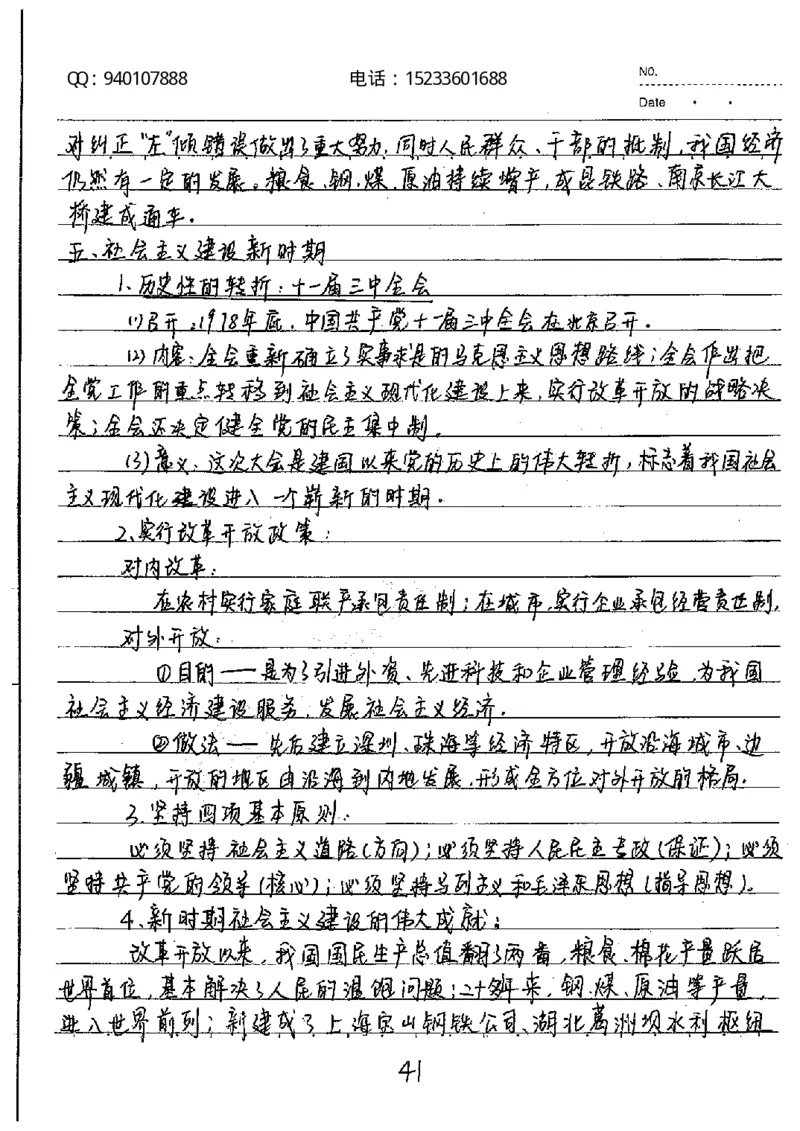 QQ：940107888
电话：15233601688
NO.
Date
对纠正“左”倾错误做出了重大努力，同时人民群众、干部的抵制，我国经济
仍然有一定的发展。粮食、钢、煤、原油持续增产，成昆铁路、南京长江大
桥建成通车。
五、社会主义建设新时期
1、历史性的转折：十一届三中全会
(1)召开：1978年底，中国共产党十一届三中全会在北京召开。
(2)内容：全会重新确立了实事求是的马克思主义思想路线；全会作出把
全党工作的重点转移到社会主义现代化建设上来，实行改革开放的战略决
策；全会还决定健全党的民主集中制。
(3)意义：这次大会是建国以来党的历史上的伟大转折，标志着我国社会
主义现代化建设进入一个崭新的时期。
2、实行改革开放政策：
对内改革：
在农村实行家庭联产承包责任制；在城市，实行企业承包经营责任制。
对外开放：
①目的——是为了引进外资、先进科技和企业管理经验，为我国
社会主义经济建设服务，发展社会主义经济。
②做法——先后建立深圳、珠海等经济特区，开放沿海城市、边
疆城镇，开放的地区由沿海到内地发展，形成全方位对外开放的格局。
3、坚持四项基本原则：
必须坚持社会主义道路(方向)；必须坚持人民民主专政(保证)；必须
坚持共产党的领导(核心)；必须坚持马列主义和毛泽东思想(指导思想)。
4、新时期社会主义建设的伟大成就：
改革开放以来，我国国民生产总值翻了两番，粮食、棉花产量跃居
世界首位，基本解决了人民的温饱问题；二十多年来，钢、煤、原油等产量，
进入世界前列；新建成了上海宝山钢铁公司、湖北葛洲坝水利枢纽
41